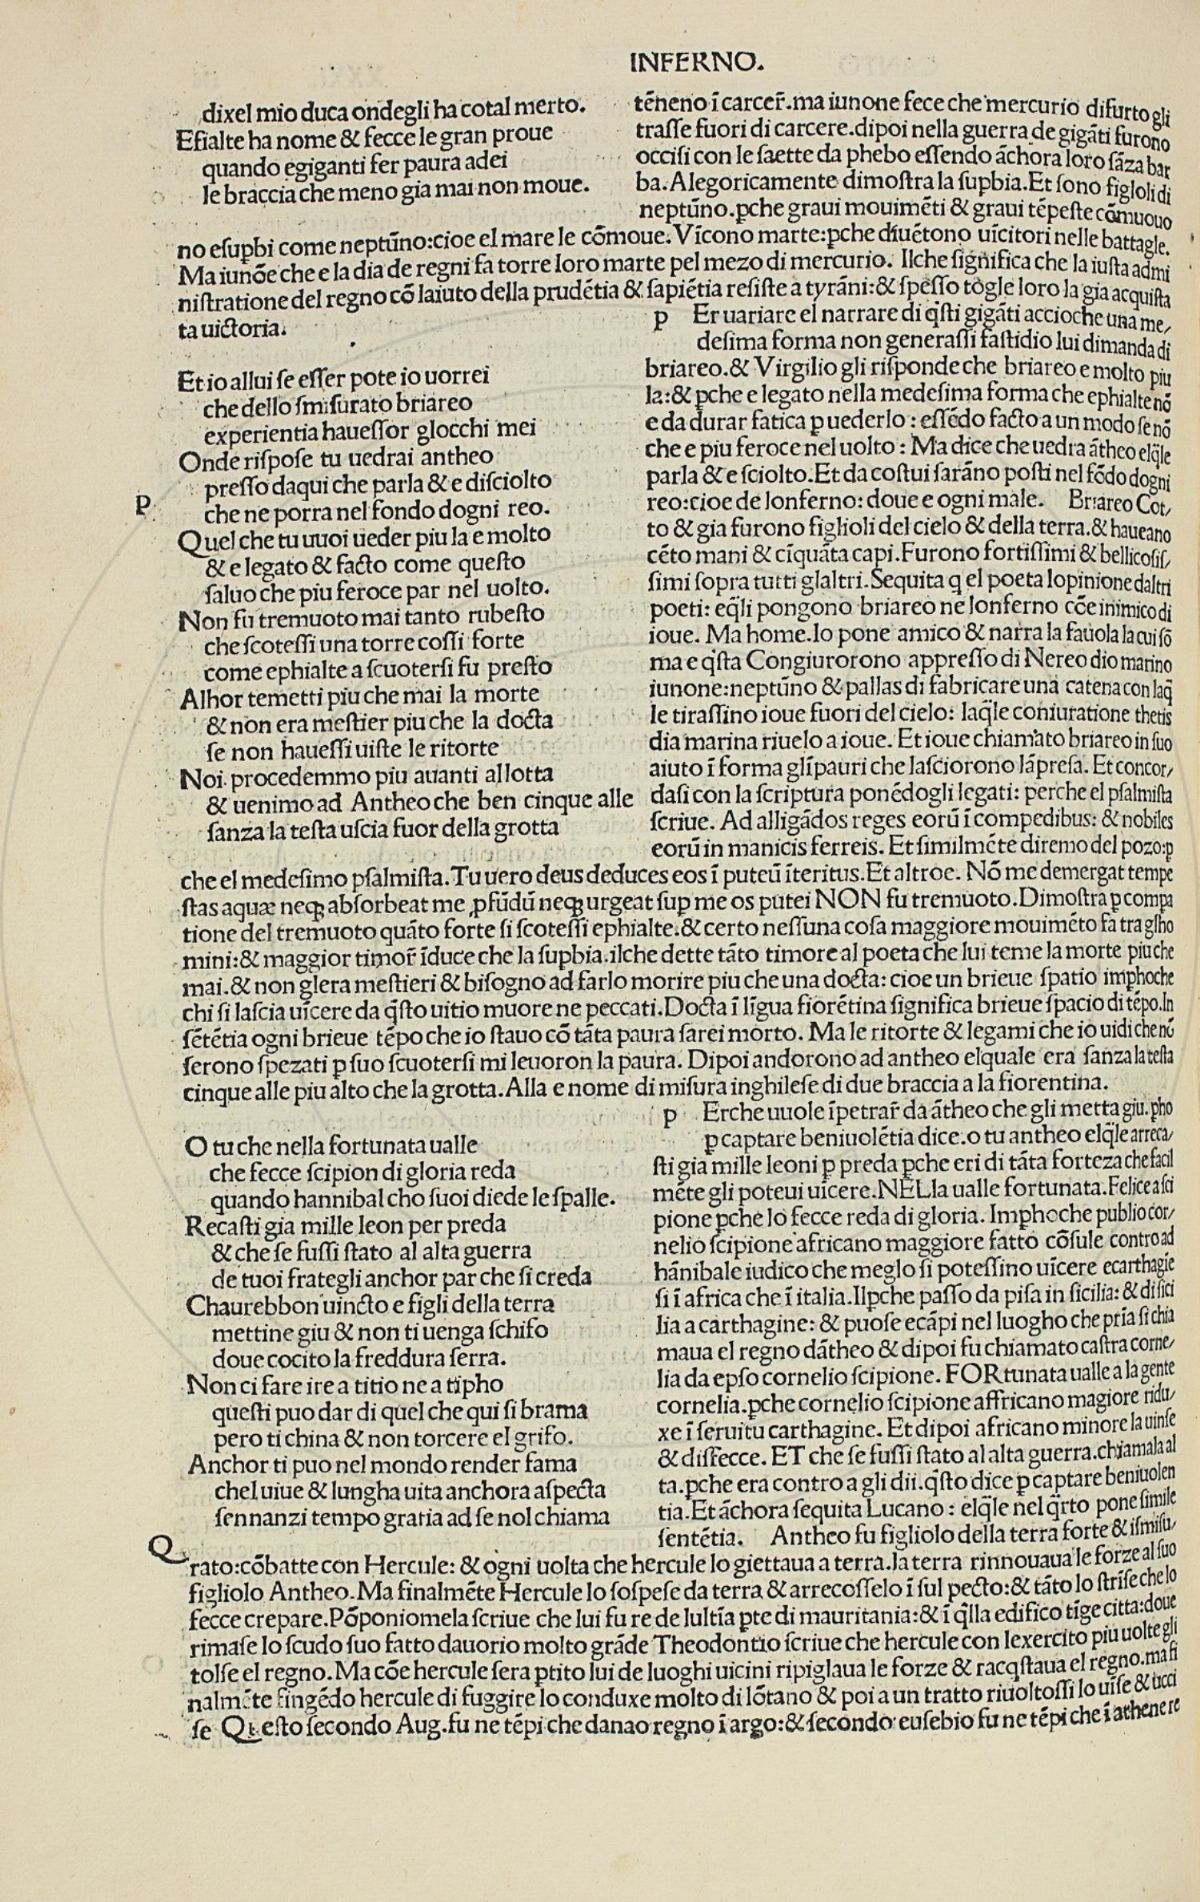 INFERNO.
dixel mio duca ondegli ha cotal merto.
Efialte ha nome & fecce le gran proue
quando egiganti fer paura adei
le braccia che meno gia mai non moue.
tēneno ī carcer̄.ma iunone fece che mercurio difurto gli
traſſe fuori di carcere.dipoi nella guerra de gigāti furono
occiſi con le ſaette da phebo eſſendo āchora loro ſāza bar
ba.Alegoricamente dimoſtra la ſupbia.Et ſono figloli di
neptūno.ꝑche graui mouimēti & graui tēpeſte cōmuouo
no eſupbi come neptūno:cioe el mare le cōmoue.Vīcono marte:ꝑche diuētono uīcitori nelle battagle.
Ma iunōe che e la dia de regni fa torre loro marte pel mezo di mercurio. Ilche ſignifica che la iuſta admi
niſtratione del regno cō laiuto della prudētia & ſapiētia reſiſte a tyrāni:& ſpeſſo togle loro la gia acquiſta
ta uictoria.
Et io allui ſe eſſer pote io uorrei
che dello ſmiſurato briareo
experientia haueſſor glocchi mei
Onde riſpoſe tu uedrai antheo
preſſo daqui che parla & e diſciolto
P che ne porra nel fondo dogni reo.
Quel che tu uuoi ueder piu la e molto
& e legato & facto come queſto
ſaluo che piu feroce par nel uolto.
Non fu tremuoto mai tanto rubeſto
che ſcoteſſi una torre coſſi forte
come ephialte a ſcuoterſi fu preſto
Alhor temetti piu che mai la morte
& non era meſtier piu che la docta
ſe non haueſſi uiſte le ritorte
Noi procedemmo piu auanti allotta
& uenimo ad Antheo che ben cinque alle
ſanza la teſta uſcia fuor della grotta
p Er uariare el narrare di qſti gigāti accioche una me,
deſima forma non generaſſi faſtidio lui dimanda di
briareo.& Virgilio gli riſponde che briareo e molto piu
la:& ꝑche e legato nella medeſima forma che ephialte nō
e da durar fatica ꝑ uederlo : eſſēdo facto a un modo ſe nō
che e piu feroce nel uolto : Ma dice che uedra ātheo elq̄le
parla & e ſciolto.Et da coſtui ſarāno poſti nel fōdo dogni
reo:cioe de lonferno: doue e ogni male. Briareo Cot,
to & gia furono figlioli del cielo & della terra.& haueano
cēto mani & cīquāta capi.Furono fortiſſimi & bellicoſiſ,
ſimi ſopra tutti glaltri.Sequita q el poeta lopinione daltri
poeti: eq̄li pongono briareo ne lonferno cōe inimico di
ioue. Ma home.lo pone amico & narra la fauola la cui ſō
ma e qſta Congiurorono appreſſo di Nereo dio marino
iunone:neptūno & pallas di fabricare una catena con laq̄
le tiraſſino ioue fuori del cielo: laq̄le coniuratione thetis
dia marina riuelo a ioue. Et ioue chiamato briareo in ſuo
aiuto ī forma glīpauri che laſciorono lāpreſa. Et concor,
daſi con la ſcriptura ponēdogli legati: perche el pſalmiſta
ſcriue. Ad alligādos reges eorū ī compedibus: & nobiles
eorū in manicis ferreis. Et ſimilmēte diremo del pozo:p
che el medeſimo pſalmiſta.Tu uero deus deduces eos ī puteū īteritus.Et altroe. Nō me demergat tempe
ſtas aquæ neqꝫ abſorbeat me ꝓfūdū neqꝫ urgeat ſup me os putei NON fu tremuoto.Dimoſtra ꝑ compa
tione del tremuoto quāto forte ſi ſcoteſſi ephialte.& certo neſſuna coſa maggiore mouimēto fa tra glho
mini:& maggior timor̄ īduce che la ſupbia.ilche dette tāto timore al poeta che lui teme la morte piu che
mai.& non glera meſtieri & biſogno ad farlo morire piu che una docta: cioe un brieue ſpatio imphoche
chi ſi laſcia uīcere da qſto uitio muore ne peccati.Docta ī līgua fiorētina ſignifica brieue ſpacio di tēpo.In
ſētētia ogni brieue tēpo che io ſtauo cō tāta paura ſarei morto. Ma le ritorte & legami che io uidi che nō
ſerono ſpezati ꝑ ſuo ſcuoterſi mi leuoron la paura. Dipoi andorono ad antheo elquale era ſanza la teſta
cinque alle piu alto che la grotta.Alla e nome di miſura inghileſe di due braccia a la fiorentina.
O tu che nella fortunata ualle
che fecce ſcipion di gloria reda
quando hannibal cho ſuoi diede le ſpalle.
Recaſti gia mille leon per preda
& che ſe fuſſi ſtato al alta guerra
de tuoi frategli anchor par che ſi creda
Chaurebbon uincto e figli della terra
mettine giu & non ti uenga ſchifo
doue cocito la freddura ſerra.
Non ci fare ire a titio ne a tipho
queſti puo dar di quel che qui ſi brama
pero ti china & non torcere el grifo.
Anchor ti puo nel mondo render fama
chel uiue & lungha uita anchora aſpecta
ſennanzi tempo gratia ad ſe nol chiama
p Erche uuole īpetrar̄ da ātheo che gli metta giu.pho
ꝑ captare beniuolētia dice.o tu antheo elq̄le arreca,
ſti gia mille leoni ꝑ preda ꝑche eri di tāta forteza che facil
mēte gli poteui uīcere.NELla ualle fortunata.Felice a ſci
pione ꝑche lo fecce reda di gloria. Imphoche publio cor,
nelio ſcipione africano maggiore fatto cōſule contro ad
hānibale iudico che meglo ſi poteſſino uīcere ecarthagīe
ſi ī africa che ī italia.Ilꝑche paſſo da piſa in ſicilia: & di ſici
lia a carthagine: & puoſe ecāpi nel luogho che prīa ſi chia
maua el regno dātheo & dipoi fu chiamato caſtra corne,
lia da epſo cornelio ſcipione. FORtunata ualle a la gente
cornelia.ꝑche cornelio ſcipione affricano magiore ridu,
xe ī ſeruitu carthagine. Et dipoi africano minore la uinſe
& disfecce. ET che ſe fuſſi ſtato al alta guerra.chiamala al
ta.ꝑche era contro a gli dii.qſto dice ꝑ captare beniuolen
tia.Et āchora ſequita Lucano : elq̄le nel q̄rto pone ſimile
ſentētia. Antheo fu figliolo della terra forte & iſmiſu,
Q rato:cōbatte con Hercule: & ogni uolta che hercule lo giettaua a terra.la terra rinnouaua le forze al ſuo
figliolo Antheo. Ma finalmēte Hercule lo ſoſpeſe da terra & arrecoſſelo ī ſul pecto:& tāto lo ſtrīſe che lo
fecce crepare. Pōponiomela ſcriue che lui fu re de lultīa pte di mauritania:& ī q̄lla edifico tīge citta:doue
rimaſe lo ſcudo ſuo fatto dauorio molto grāde Theodontio ſcriue che hercule con lexercito piu uolte gli
tolſe el regno. Ma cōe hercule ſera ptito lui de luoghi uicini ripiglaua le forze & racqſtaua el regno.ma fi
nalmēte fingēdo hercule di fuggire lo conduxe molto di lōtano & poi a un tratto riuoltoſſi lo uīſe & ucci
ſe Queſto ſecondo Aug.fu ne tēpi che danao regno ī argo:& ſecondo euſebio fu ne tēpi che ī athene re